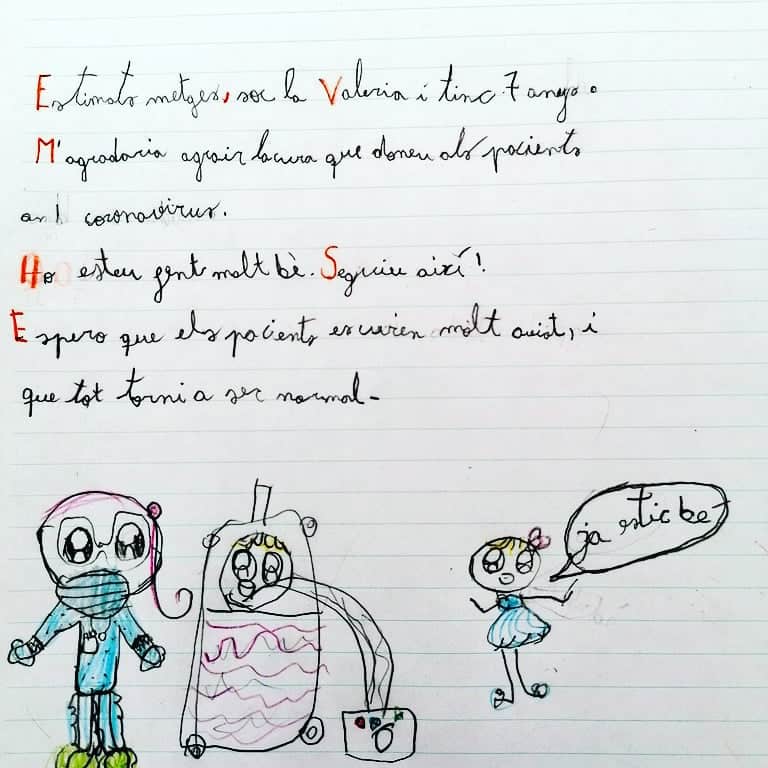 Estimats metges, soc la Valeria i tinc 7 anys.
M'agradaria agrair la cura que doneu als pacients
amb coronavirus.
Ho esteu fent molt bè. Seguiu així!
Espero que els pacients es curin molt aviat, i
que tot torni a ser normal-
ja estic be